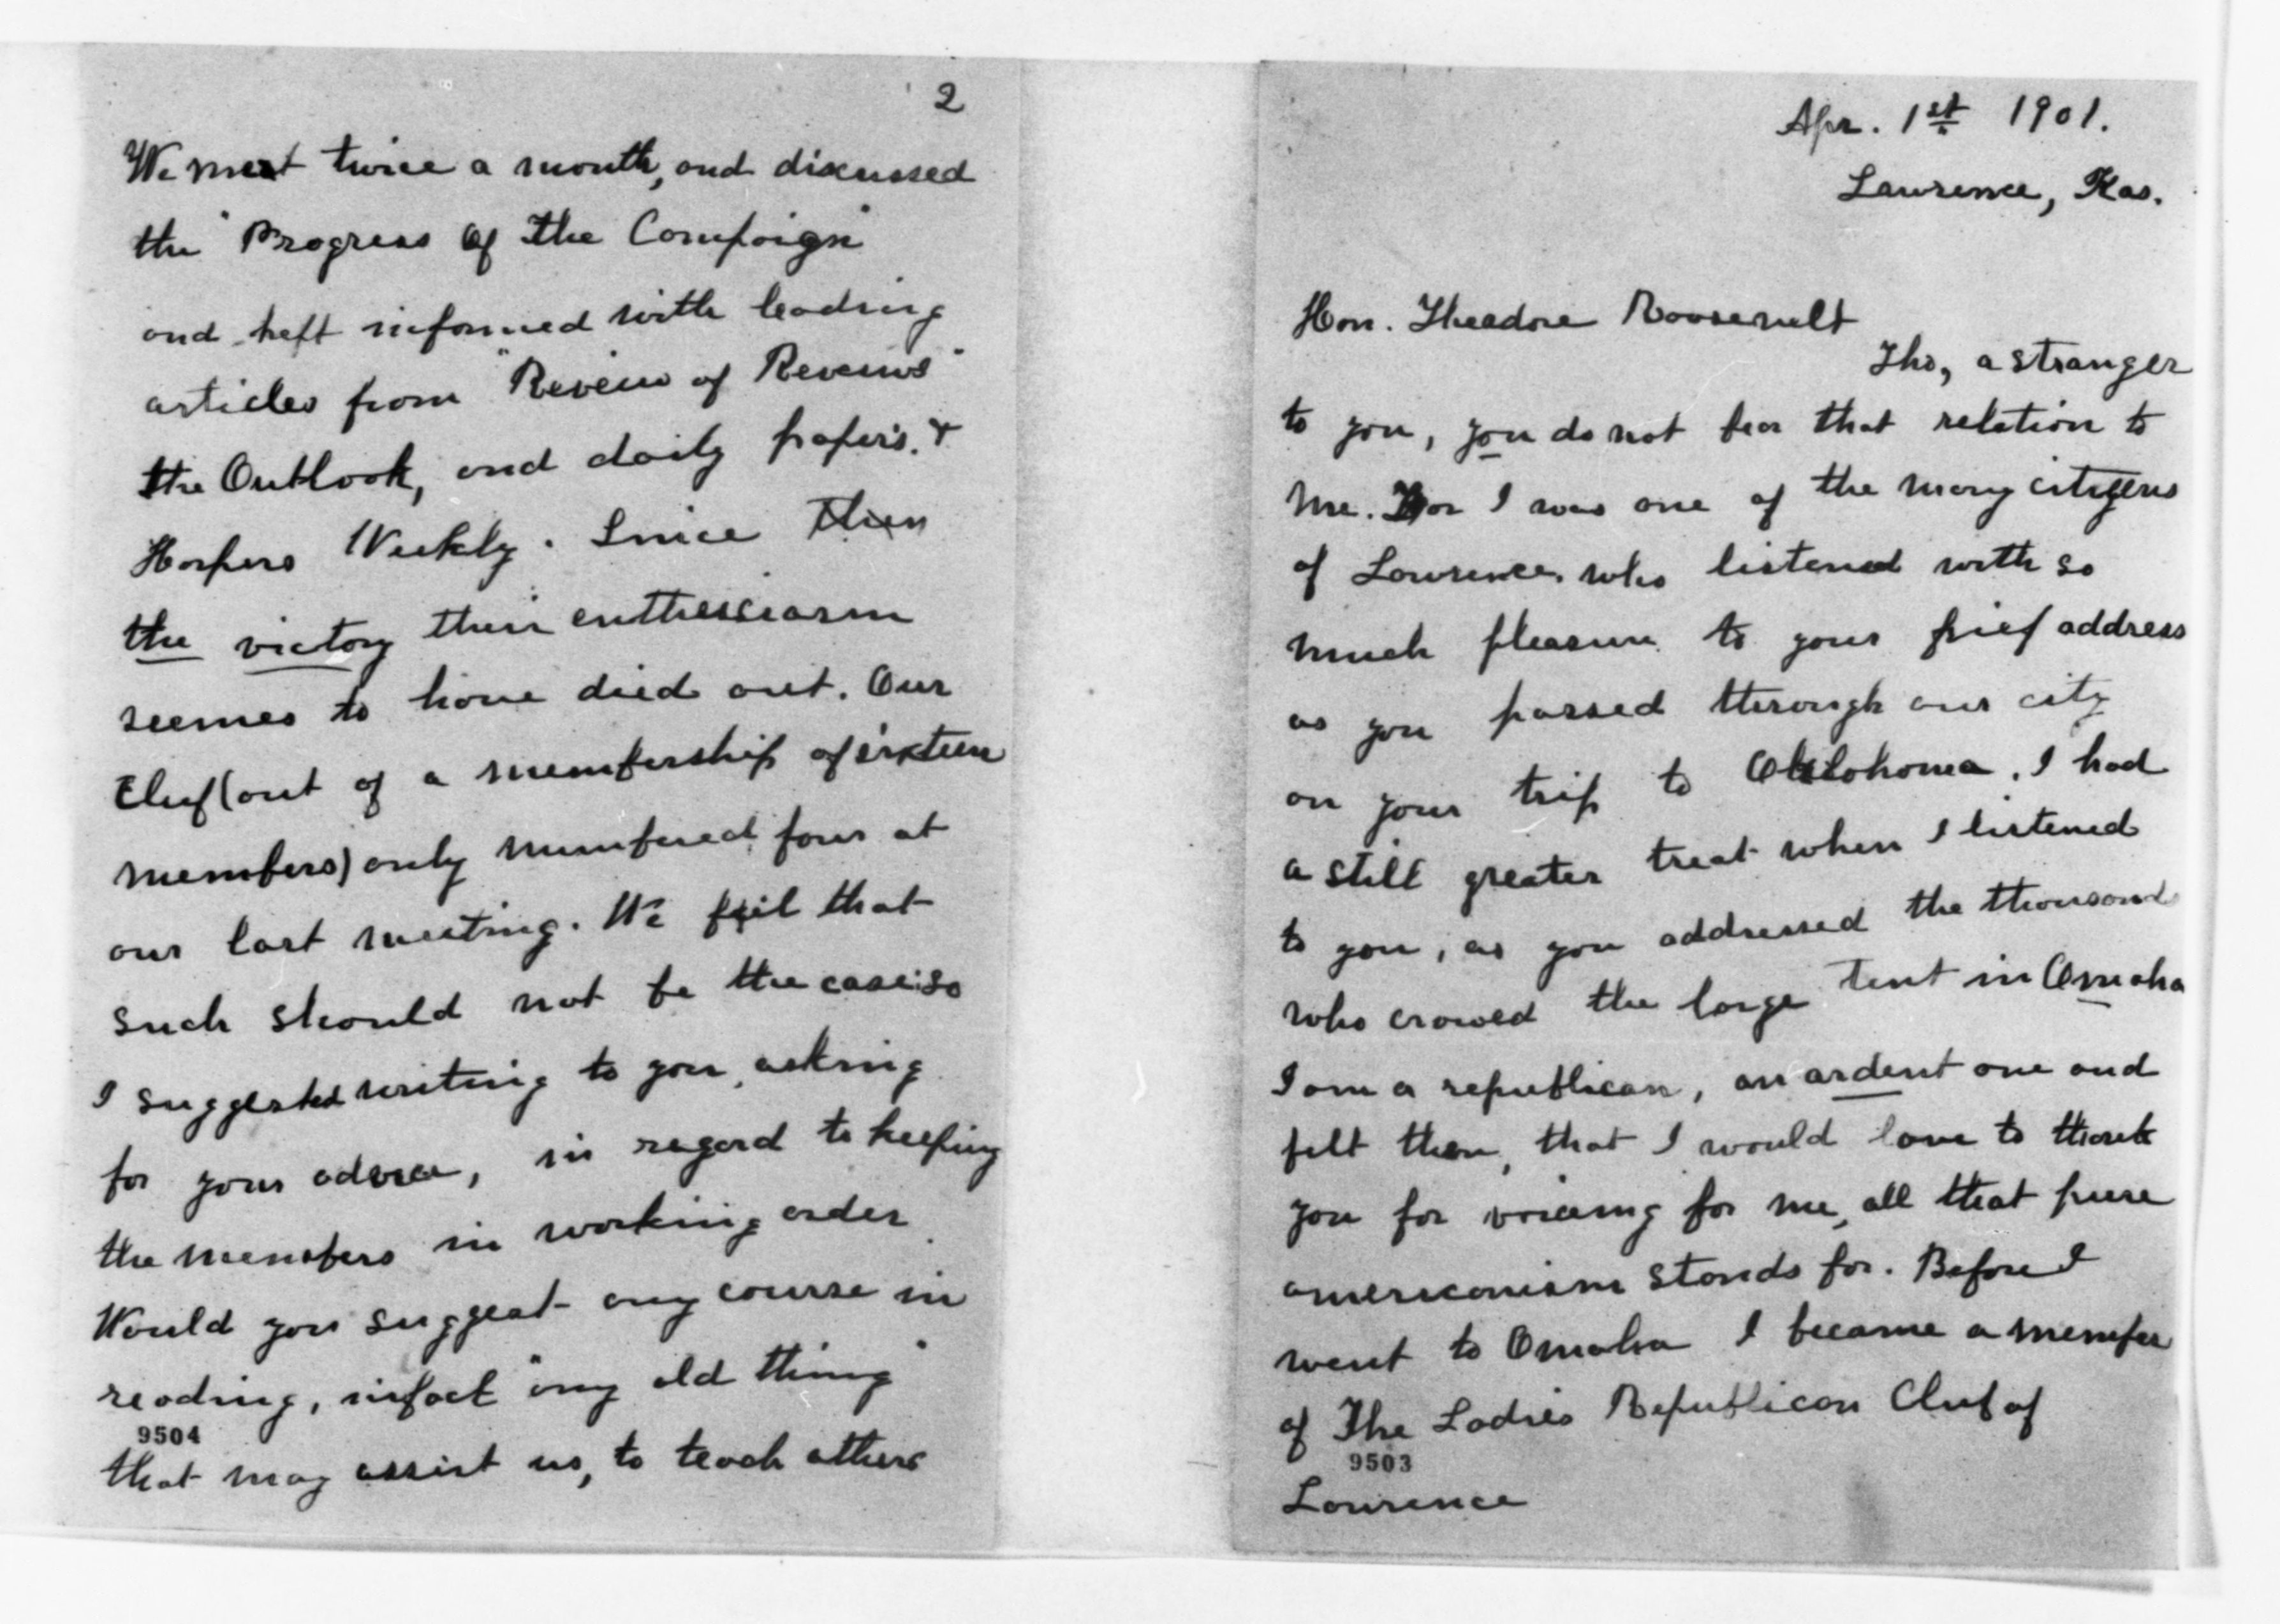 Apr. 1st 1901.
Lawrence, Kas.
Hon. Theadore Roosevelt
Tho, a stranger
to you, you do not bear that relation to
me. For I was one of the many citizens
of Lawrence, who listened with so
much pleasure to your brief address
as you passed through our city
on your trip to Oklohoma. I had
a still greater treat when I listened
to you, as you addressed the thousands
who crowed the large tent in Omaha
I am a republican, an ardent one and
felt then, that I would love to thank
you for voicing for me, all that pure
americanism stands for. Before I
went to Omaha I became a member
of The Ladies Republican Club of
9503
Lawrence
2
We meet twice a month, and discussed
the "Progress of the Campaign"
and kept informed with leading
articles from "Reveiw of Reveiws"
the Outlook, and daily paper's. &
Harpers Weekly. Since then
the victory their enthusiasm
seemes to have died out. Our
Club (out of a membership of sixteen
members) only numbered four at
our last meeting. We feel that
such should not be the case: so
I suggested writing to you, asking
for your advice, in regard to keeping
the members in working order
Would you suggest any course in
reading, infact "any old thing"
9504
that may assist us, to teach others